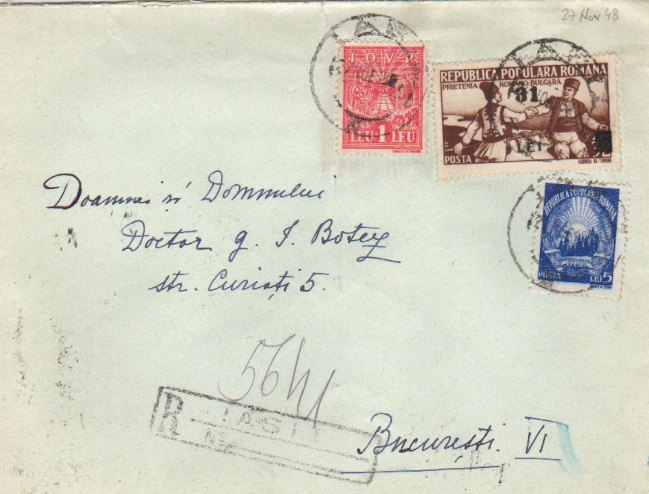 27 Nov 48
IAȘI
I.O.V.R.
LEU 1 LEU
REPUBLICA POPULARA ROMANA
PRIETENIA ROMANO-BULGARA
31
LEI
POSTA
FABRICA DE TIMBRE
REPUBLICA POPULARA ROMANA
RPR
POSTA LEI 5
Doamnei și Domnului
Doctor G. I. Botez
str. Curiați 5.
R IASI
No
București VI